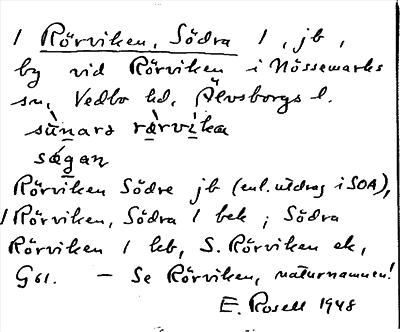 / Rörviken, Södra /, jb,
by vid Rörviken i Nössemarks
sn, Vedbo hd, Älvsborgs l.
sù̱nara rærvìka
sǽgan
Rörviken Södre jb (enl. utdrag i SOA),
/ Rörviken, Södra / bek; Södra
Rörviken / kb, S. Rörviken ek,
G61. – Se Rörviken, naturnamnen!
E. Rosell 1948